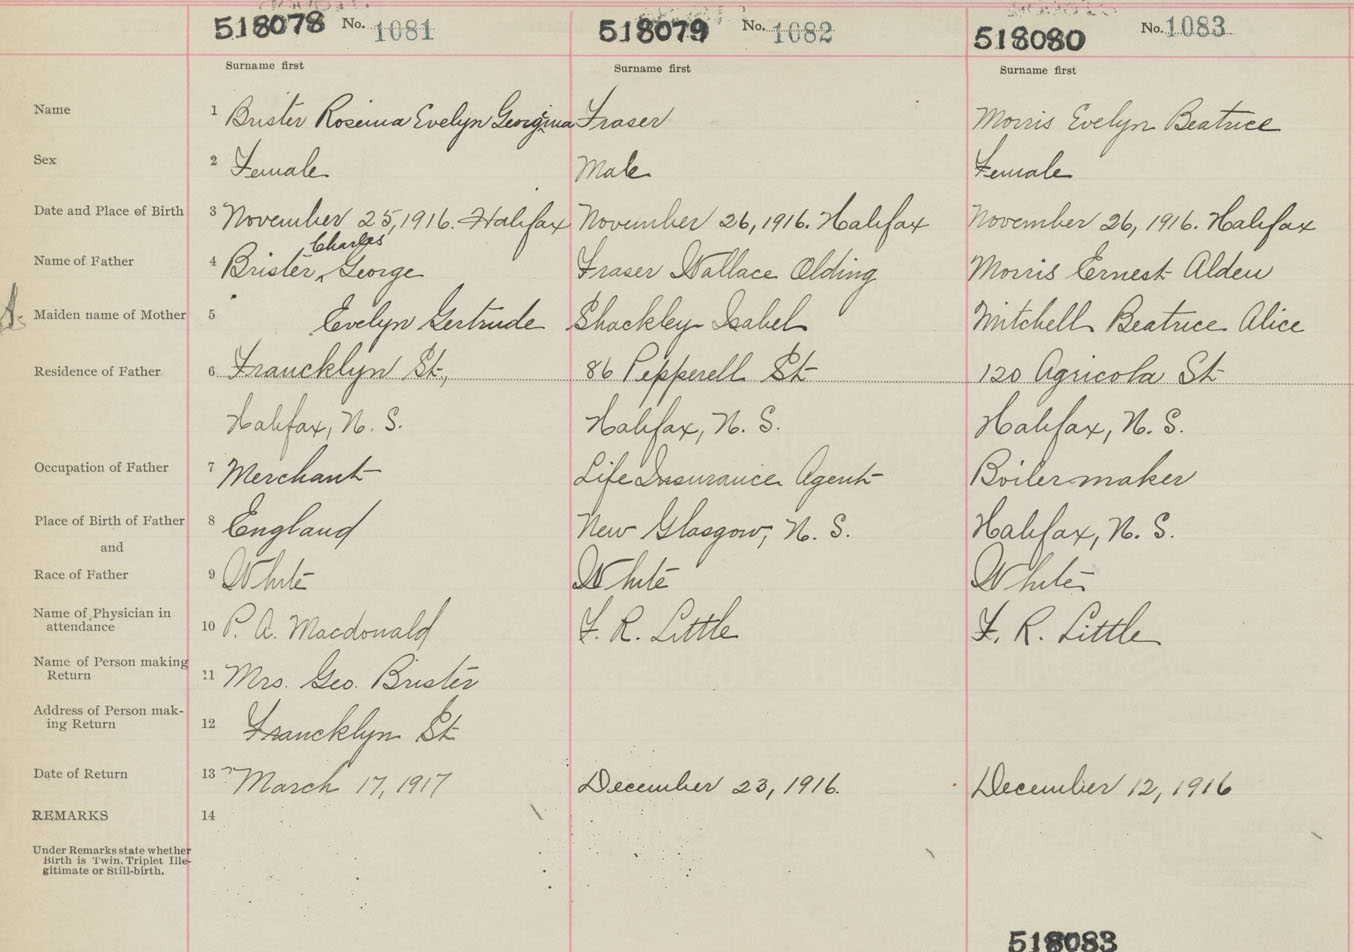 518078 No. 1081 518079 No. 1082 518080 No. 1083
Surname first Surname first Surname first
Name 1 Brister Roseina Evelyn Georgina Fraser Morris Evelyn Beatrice
Sex 2 Female Male Female
Date and Place of Birth 3 November 25, 1916. Halifax November 26, 1916. Halifax November 26, 1916. Halifax
Charles
Name of Father 4 Brister, ^ George Fraser Wallace Olding Morris Ernest Alden
A. Maiden name of Mother 5 Evelyn Gertrude Shackley Isabel Mitchell Beatrice Alice
Residence of Father 6 Francklyn St., 86 Pepperell St 120 Agricola St
Halifax, N. S. Halifax, N. S. Halifax, N. S.
Occupation of Father 7 Merchant Life Insurance Agent Boilermaker
Place of Birth of Father 8 England New Glasgow, N. S. Halifax, N. S.
and
Race of Father 9 White White White
Name of Physician in
attendance 10 P. A. Macdonald F. R. Little F. R. Little
Name of Person making
Return 11 Mrs. Geo. Brister
Address of Person mak-
ing Return 12 Francklyn St
Date of Return 13 March 17, 1917 December 23, 1916. December 12, 1916
REMARKS 14
Under Remarks state whether
Birth is Twin, Triplet Ille-
gitimate or Still-birth.
518083